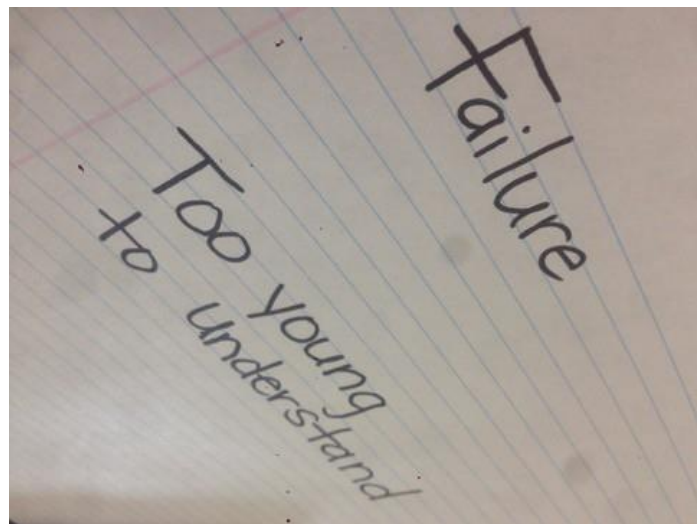 Failure
Too young
to understand